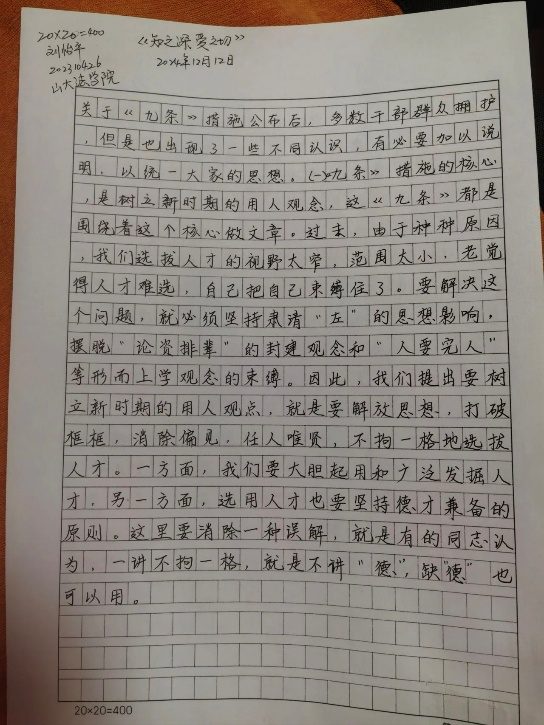 20×20=400
刘怡年
202310426
山大法学院
《知之深爱之切》
2024年12月12日
关于《九条》措施公布后,多数干部群众拥护
,但是也出现了一些不同认识,有必要加以说
明,以统一大家的思想。(一)《九条》措施的核心
,是树立新时期的用人观念,这《九条》都是
围绕着这个核心做文章。过去,由于种种原因
,我们选拔人才的视野太窄,范围太小,老觉
得人才难选,自己把自己束缚住了。要解决这
个问题,就必须坚持肃清“左”的思想影响,
摆脱“论资排辈”的封建观念和“人要完人”
等形而上学观念的束缚。因此,我们提出要树
立新时期的用人观点,就是要解放思想,打破
框框,消除偏见,任人唯贤,不拘一格地选拔
人才。一方面,我们要大胆起用和广泛发掘人
才,另一方面,选用人才也要坚持德才兼备的
原则。这里要消除一种误解,就是有的同志认
为,一讲不拘一格,就是不讲“德”,缺“德”也
可以用。
20×20=400